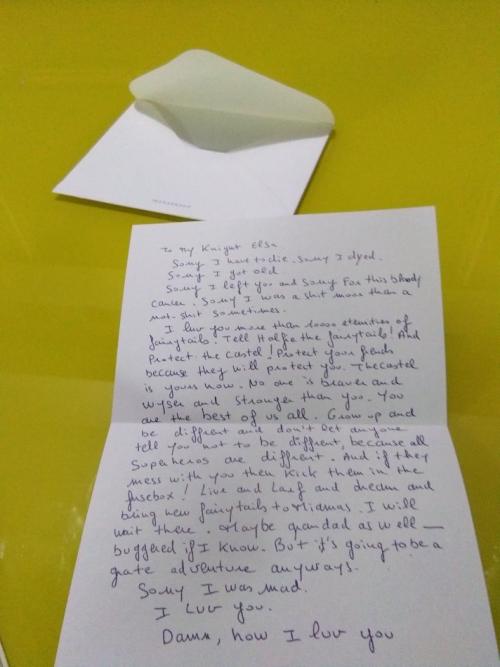 To my Knight Elsa.
Sorry I have to die. Sorry I dyed.
Sorry I got old.
Sorry I left you and sorry for this blody
cancer. Sorry I was a shit more than a
not-shit sometimes.
I luv you more than 10000 eternities of
fairytails. Tell Halfie the fairytails! And
Protect the Castel! Protect your friends
because they will protect you. The castel
is yours now. No one is braver and
wyser and stronger than you. You
are the best of us all. Grow up and
be diffrent and don't let anyone
tell you not to be diffrent, because all
Superheros are diffrent. And if they
mess with you then Kick them in the
fusebox! Live and Larf and dream and
bring new fairytails to Miamas. I will
wait there. Maybe grandad as well —
buggered if I know. But it's going to be a
grate adventure anyways.
Sorry I was mad.
I Luv you.
Damn, how I luv you